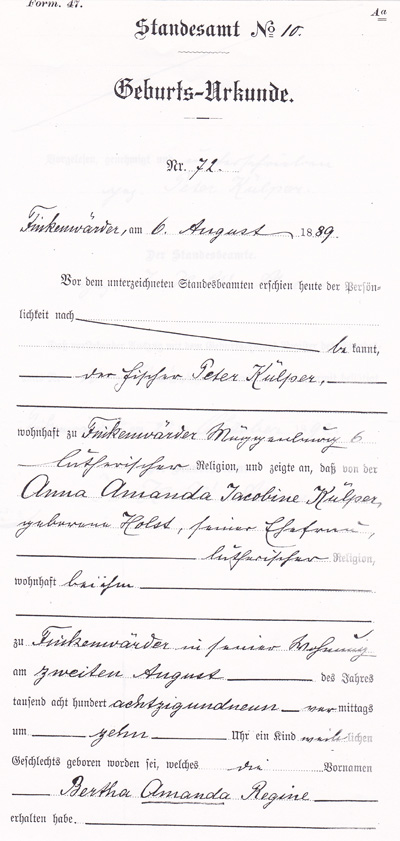 Form. 47.
Aa
Standesamt No 10.
Geburts-Urkunde.
Nr. 72.
Finkenwärder, am 6. August 1889.
Vor dem unterzeichneten Standesbeamten erschien heute der Persön-
lichkeit nach
bekannt,
der Fischer Peter Külper,
wohnhaft zu Finkenwärder Müggenburg 6
lutherischer Religion, und zeigte an, daß von der
Anna Amanda Jacobine Külper,
geborene Holst, seiner Ehefrau,
lutherischer Religion,
wohnhaft bei ihm
zu Finkenwärder in seiner Wohnung
am zweiten August des Jahres
tausend acht hundert achtzigundneun vormittags
um zehn Uhr ein Kind weiblichen
Geschlechts geboren worden sei, welches die Vornamen
Bertha Amanda Regine
erhalten habe.